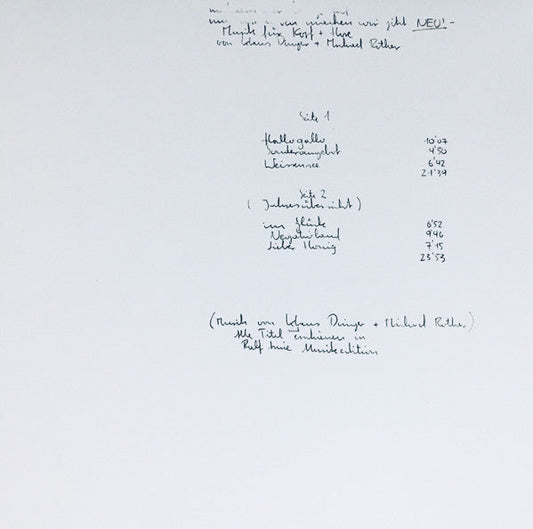 machen wir jetzt NEU! -
Musik für Kopf + Hose
von Klaus Dinger + Michael Rother
Seite 1
Hallogallo 10'07
Sonderangebot 4'50
Weissensee 6'42
21'39
Seite 2
( Jahresübersicht )
im Glück 6'52
Negativland 9'46
Lieber Honig 7'15
23'53
(Musik von Klaus Dinger + Michael Rother)
Alle Titel erschienen in
Ralf Musikedition